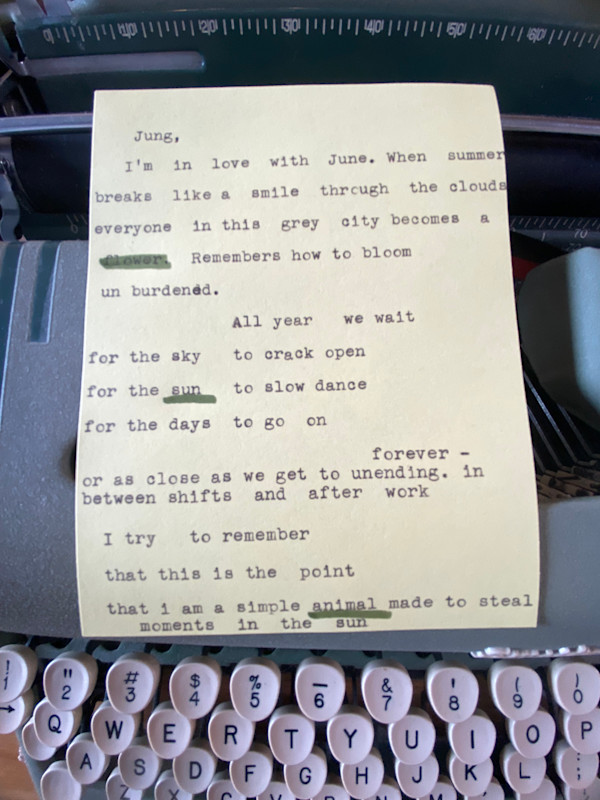 0 10 20 30 40 50 60
Jung,
I'm in love with June. When summer
breaks like a smile through the clouds
everyone in this grey city becomes a
flower. Remembers how to bloom
un burdened.
All year we wait
for the sky to crack open
for the sun to slow dance
for the days to go on
forever -
or as close as we get to unending. in
between shifts and after work
I try to remember
that this is the point
that i am a simple animal made to steal
moments in the sun
" 2 # 3 $ 4 % 5 _ 6 & 7 ' 8 ( 9 ) 0
Q W E R T Y U I O P
A S D F G H J K L ; :
Z X C V B N M